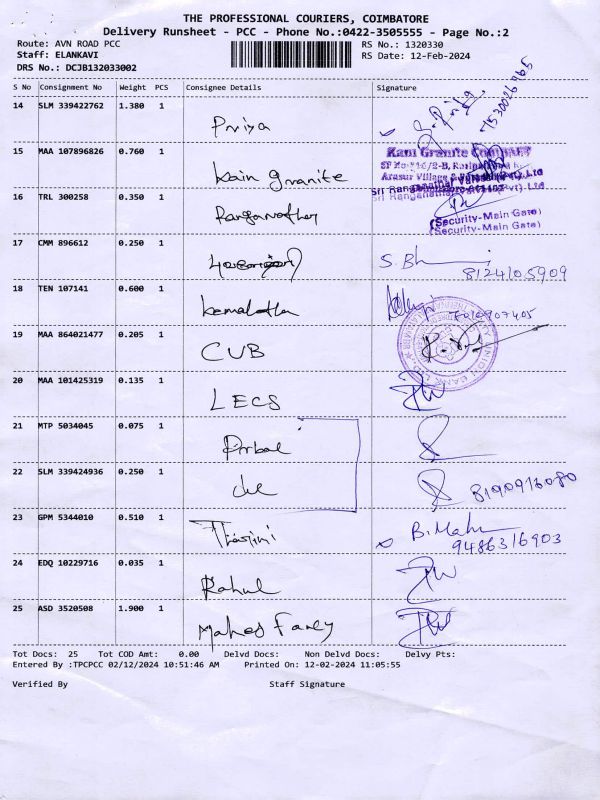 THE PROFESSIONAL COURIERS, COIMBATORE
Delivery Runsheet - PCC - Phone No.:0422-3505555 - Page No.:2
Route: AVN ROAD PCC
Staff: ELANKAVI
DRS No.: DCJB132033002
RS No.: 1320330
RS Date: 12-Feb-2024
S No Consignment No Weight PCS Consignee Details Signature
14 SLM 339422762 1.380 1 Priya
15 MAA 107896826 0.760 1 kain granite
Kani Granite Company
16 TRL 300258 0.350 1
(Security-Main Gate)
(Security-Main Gate)
17 CMM 896612 0.250 1 S.Bh
8124105909
18 TEN 107141 0.600 1 kemalatha
19 MAA 864021477 0.205 1 CUB
20 MAA 101425319 0.135 1 LECS
21 MTP 5034045 0.075 1
22 SLM 339424936 0.250 1
23 GPM 5344010 0.510 1 Tharini
9486316903
24 EDQ 10229716 0.035 1 Rahul
25 ASD 3520508 1.900 1 Mahes Fancy
Tot Docs: 25 Tot COD Amt: 0.00 Delvd Docs: Non Delvd Docs: Delvy Pts:
Entered By :TPCPCC 02/12/2024 10:51:46 AM Printed On: 12-02-2024 11:05:55
Verified By Staff Signature